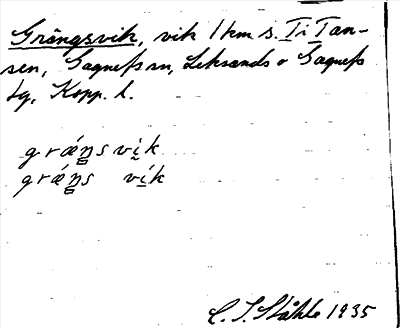 Grängsvik, vik 1 km s. Ti Tan-
sen, Gagnefs sn, Leksands o Gagnefs
tg, Kopp. l.
grǽn̲s vi̲k
grǽn̲s ví̲k
C. I. Ståhle 1935